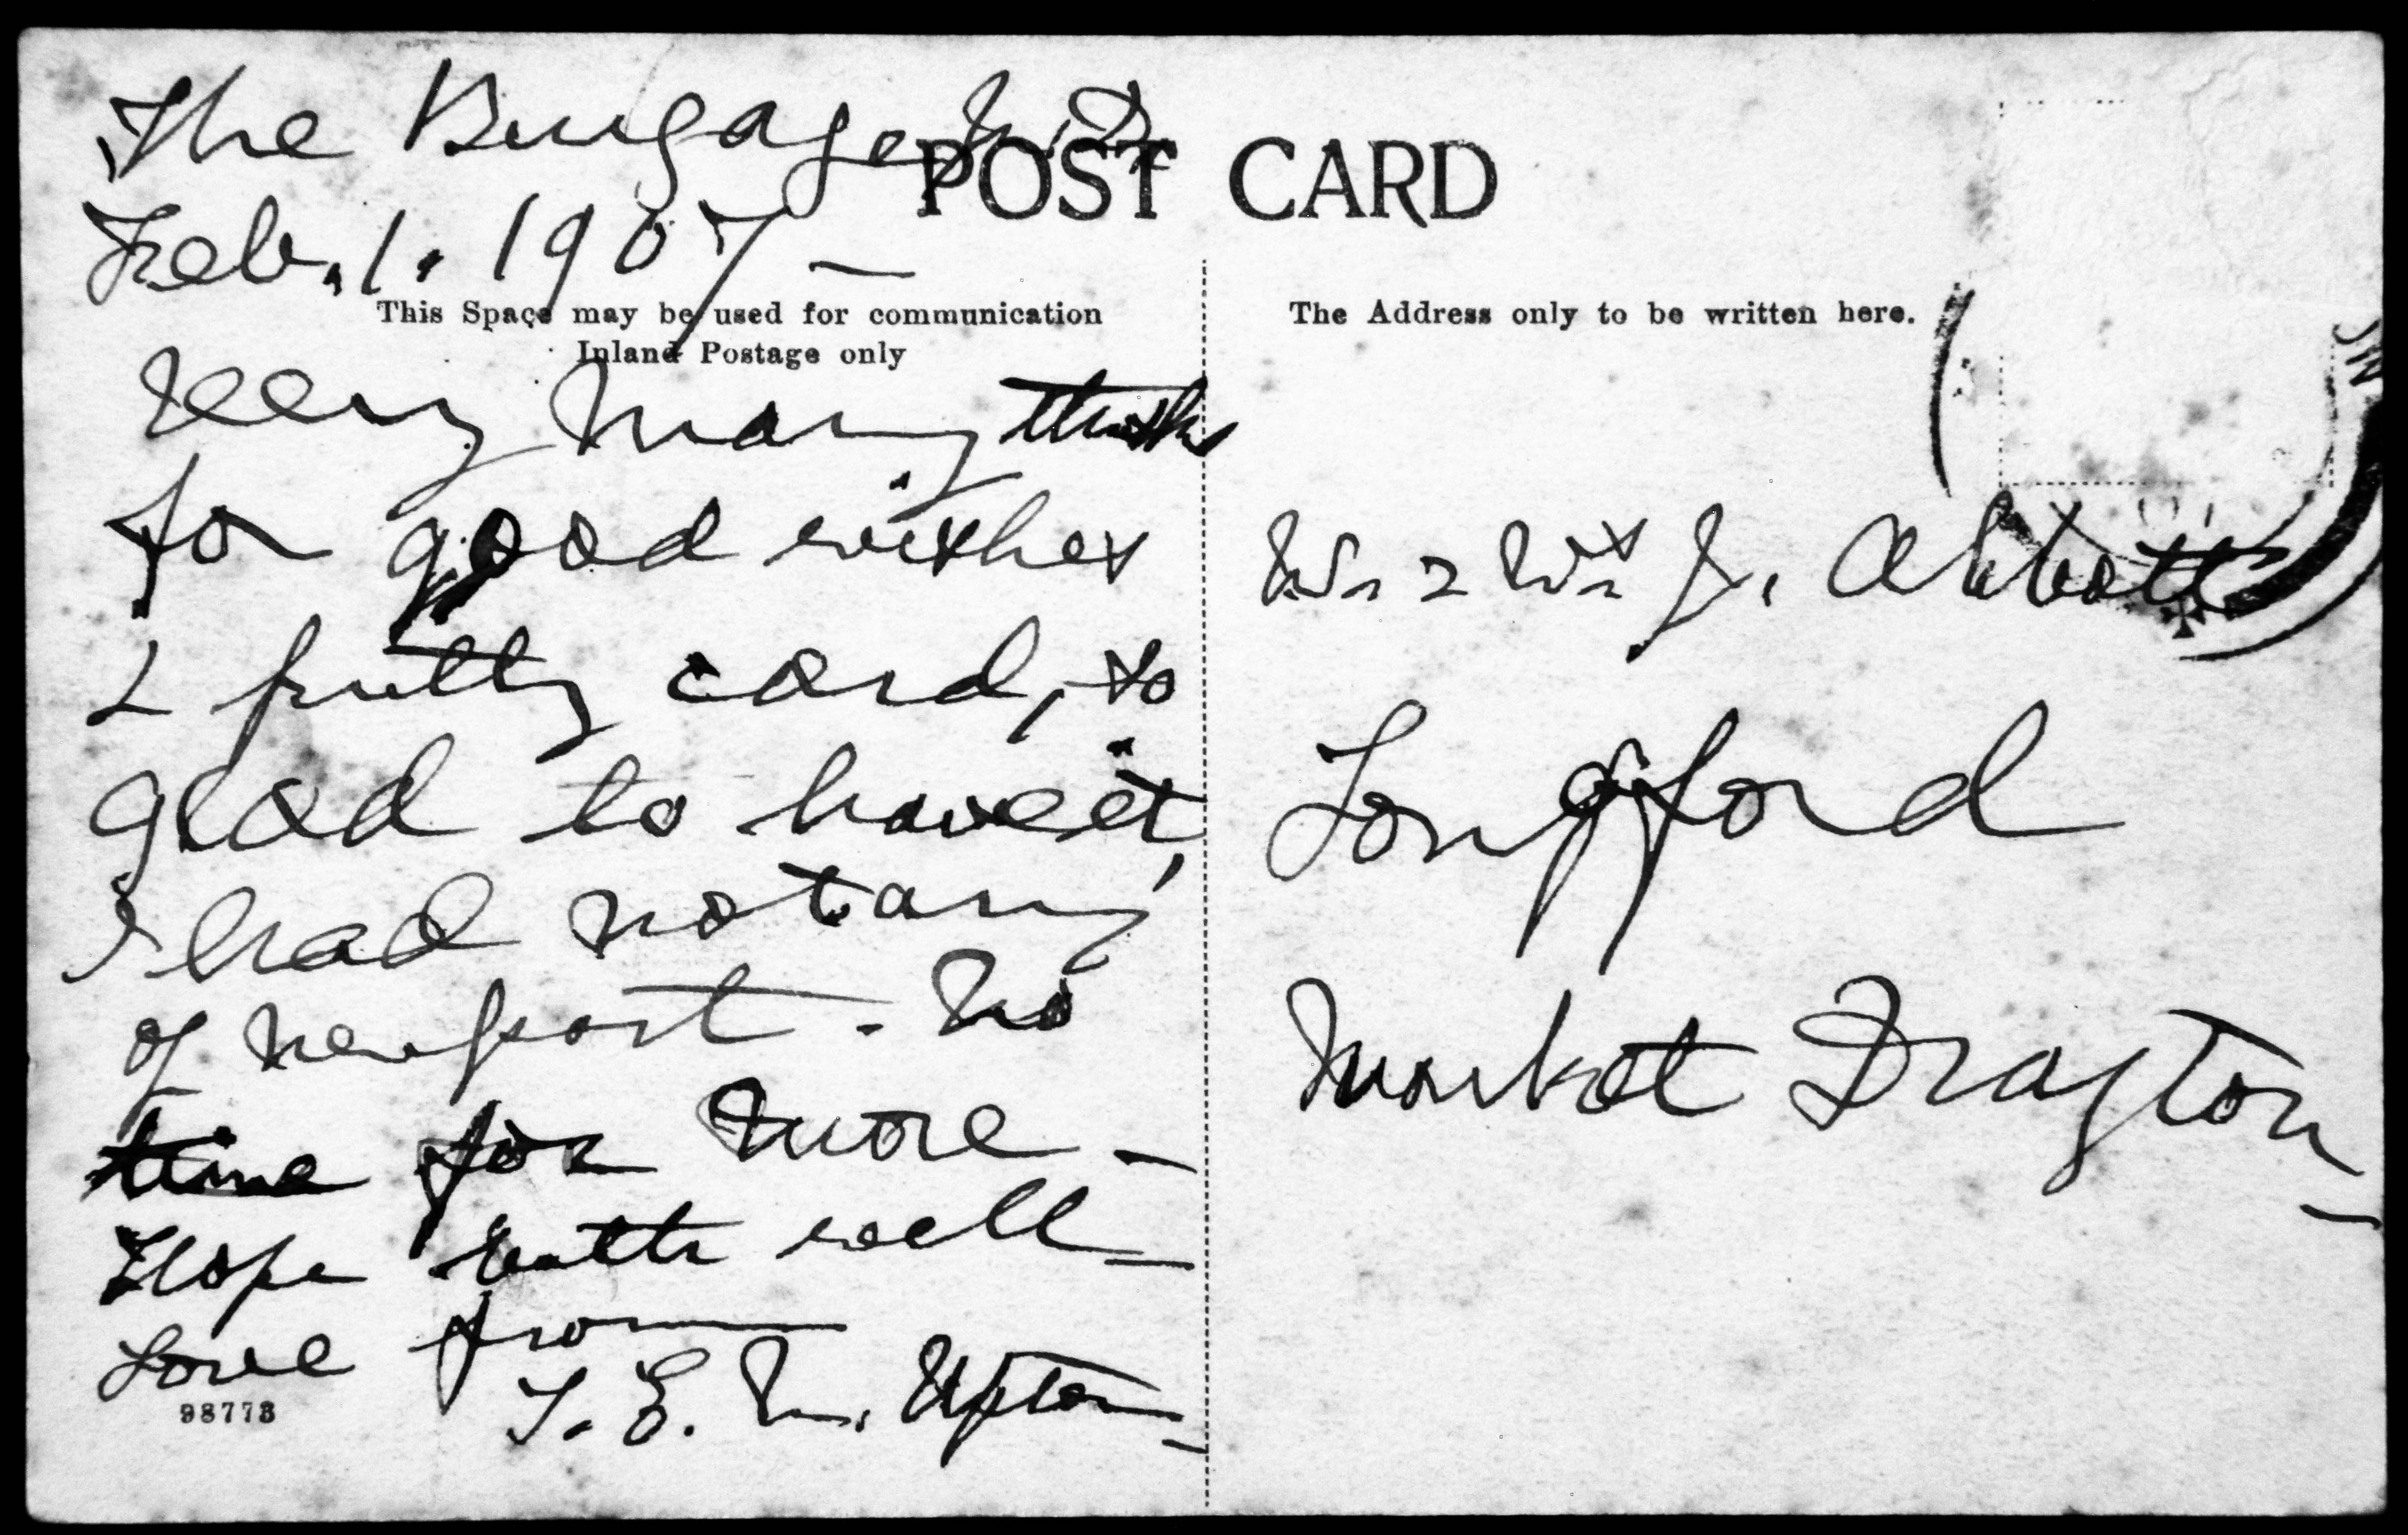 The Burgage, M.D.
POST CARD
Feb. 1. 1907 —
This Space may be used for communication
Inland Postage only
Very many thanks
for good wishes
& pretty card, so
glad to have it,
I had not any
of Newport - No
time for more —
Hope both well —
Love from
T. E. M. Upton —
98773
The Address only to be written here.
Mr & Mrs J. Abbott
Longford
Market Drayton —